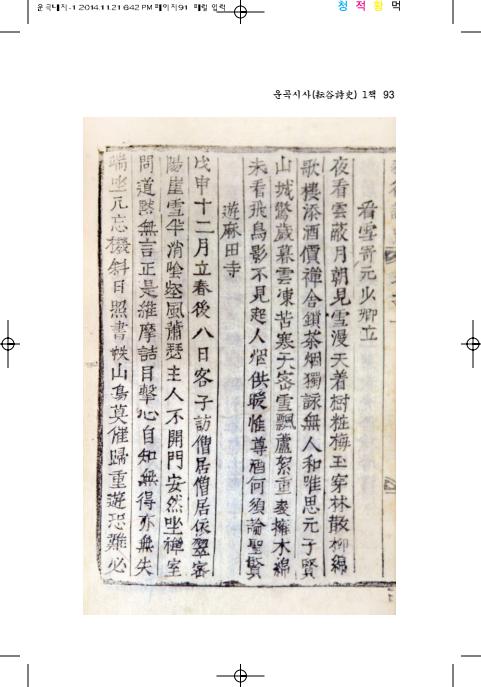 운곡내지-1 2014.11.21 6:42 PM 페이지91 매일 입력
청 적 황 먹
운곡시사(耘谷詩史) 1책 93
看雪寄元少卿立
夜看雲蔽月朝見雪漫天着樹粧梅玉穿林散柳綿
歌樓添酒價禅舍鎖茶烟獨詠無人和唯思元子賢
山城驚歲暮雲凍苦寒天密雪飄蘆絮重衾擁木綿
未看飛鳥影不見起人烟供暖惟尊酒何須論聖賢
遊麻田寺
戊申十二月立春後八日客子訪僧居僧居依翠密
陽崖雪半消唅壑風蕭瑟主人不開門安然坐禅室
問道黙無言正是維摩詰目擊心自知無得亦無失
端坐元忘機斜日照書帙山鳥莫催歸重遊恐難必